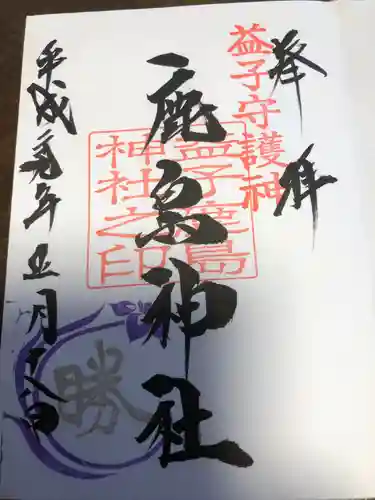 奉拝
益子守護神
鹿島神社
益子鹿島
神社之印
平成元年五月十八日
勝